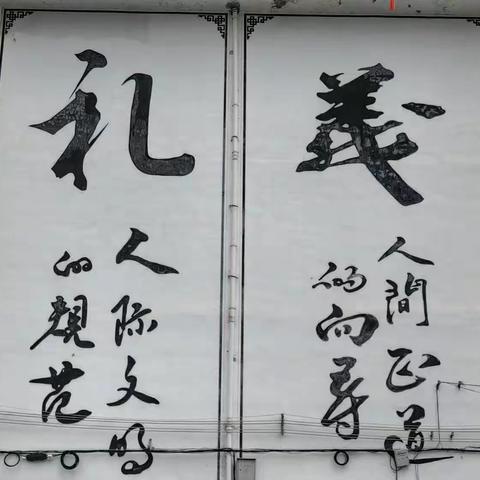 義
人間正道
的向导
礼
人际文明
的規范